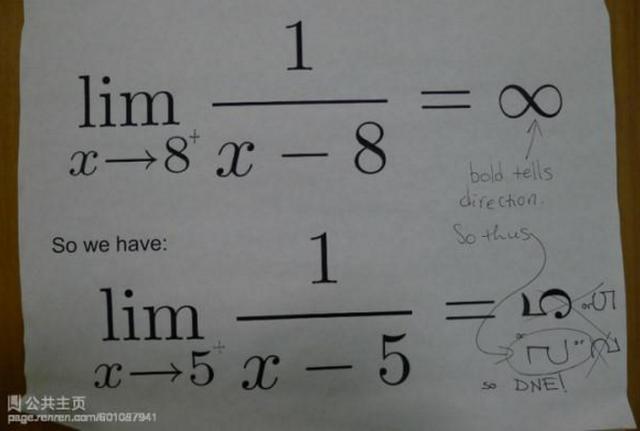 lim x→8⁺ 1/(x − 8) = ∞
bold tells
direction.
So thus
So we have:
lim x→5⁺ 1/(x − 5) = 5
or
so DNE!
公共主页
page.renren.com/601087941